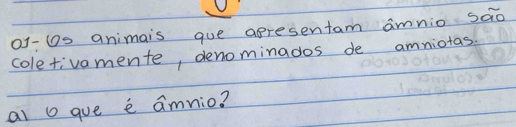 01- Os animais que apresentam âmnio são
coletivamente, denominados de amniotas.
a) O que é âmnio?